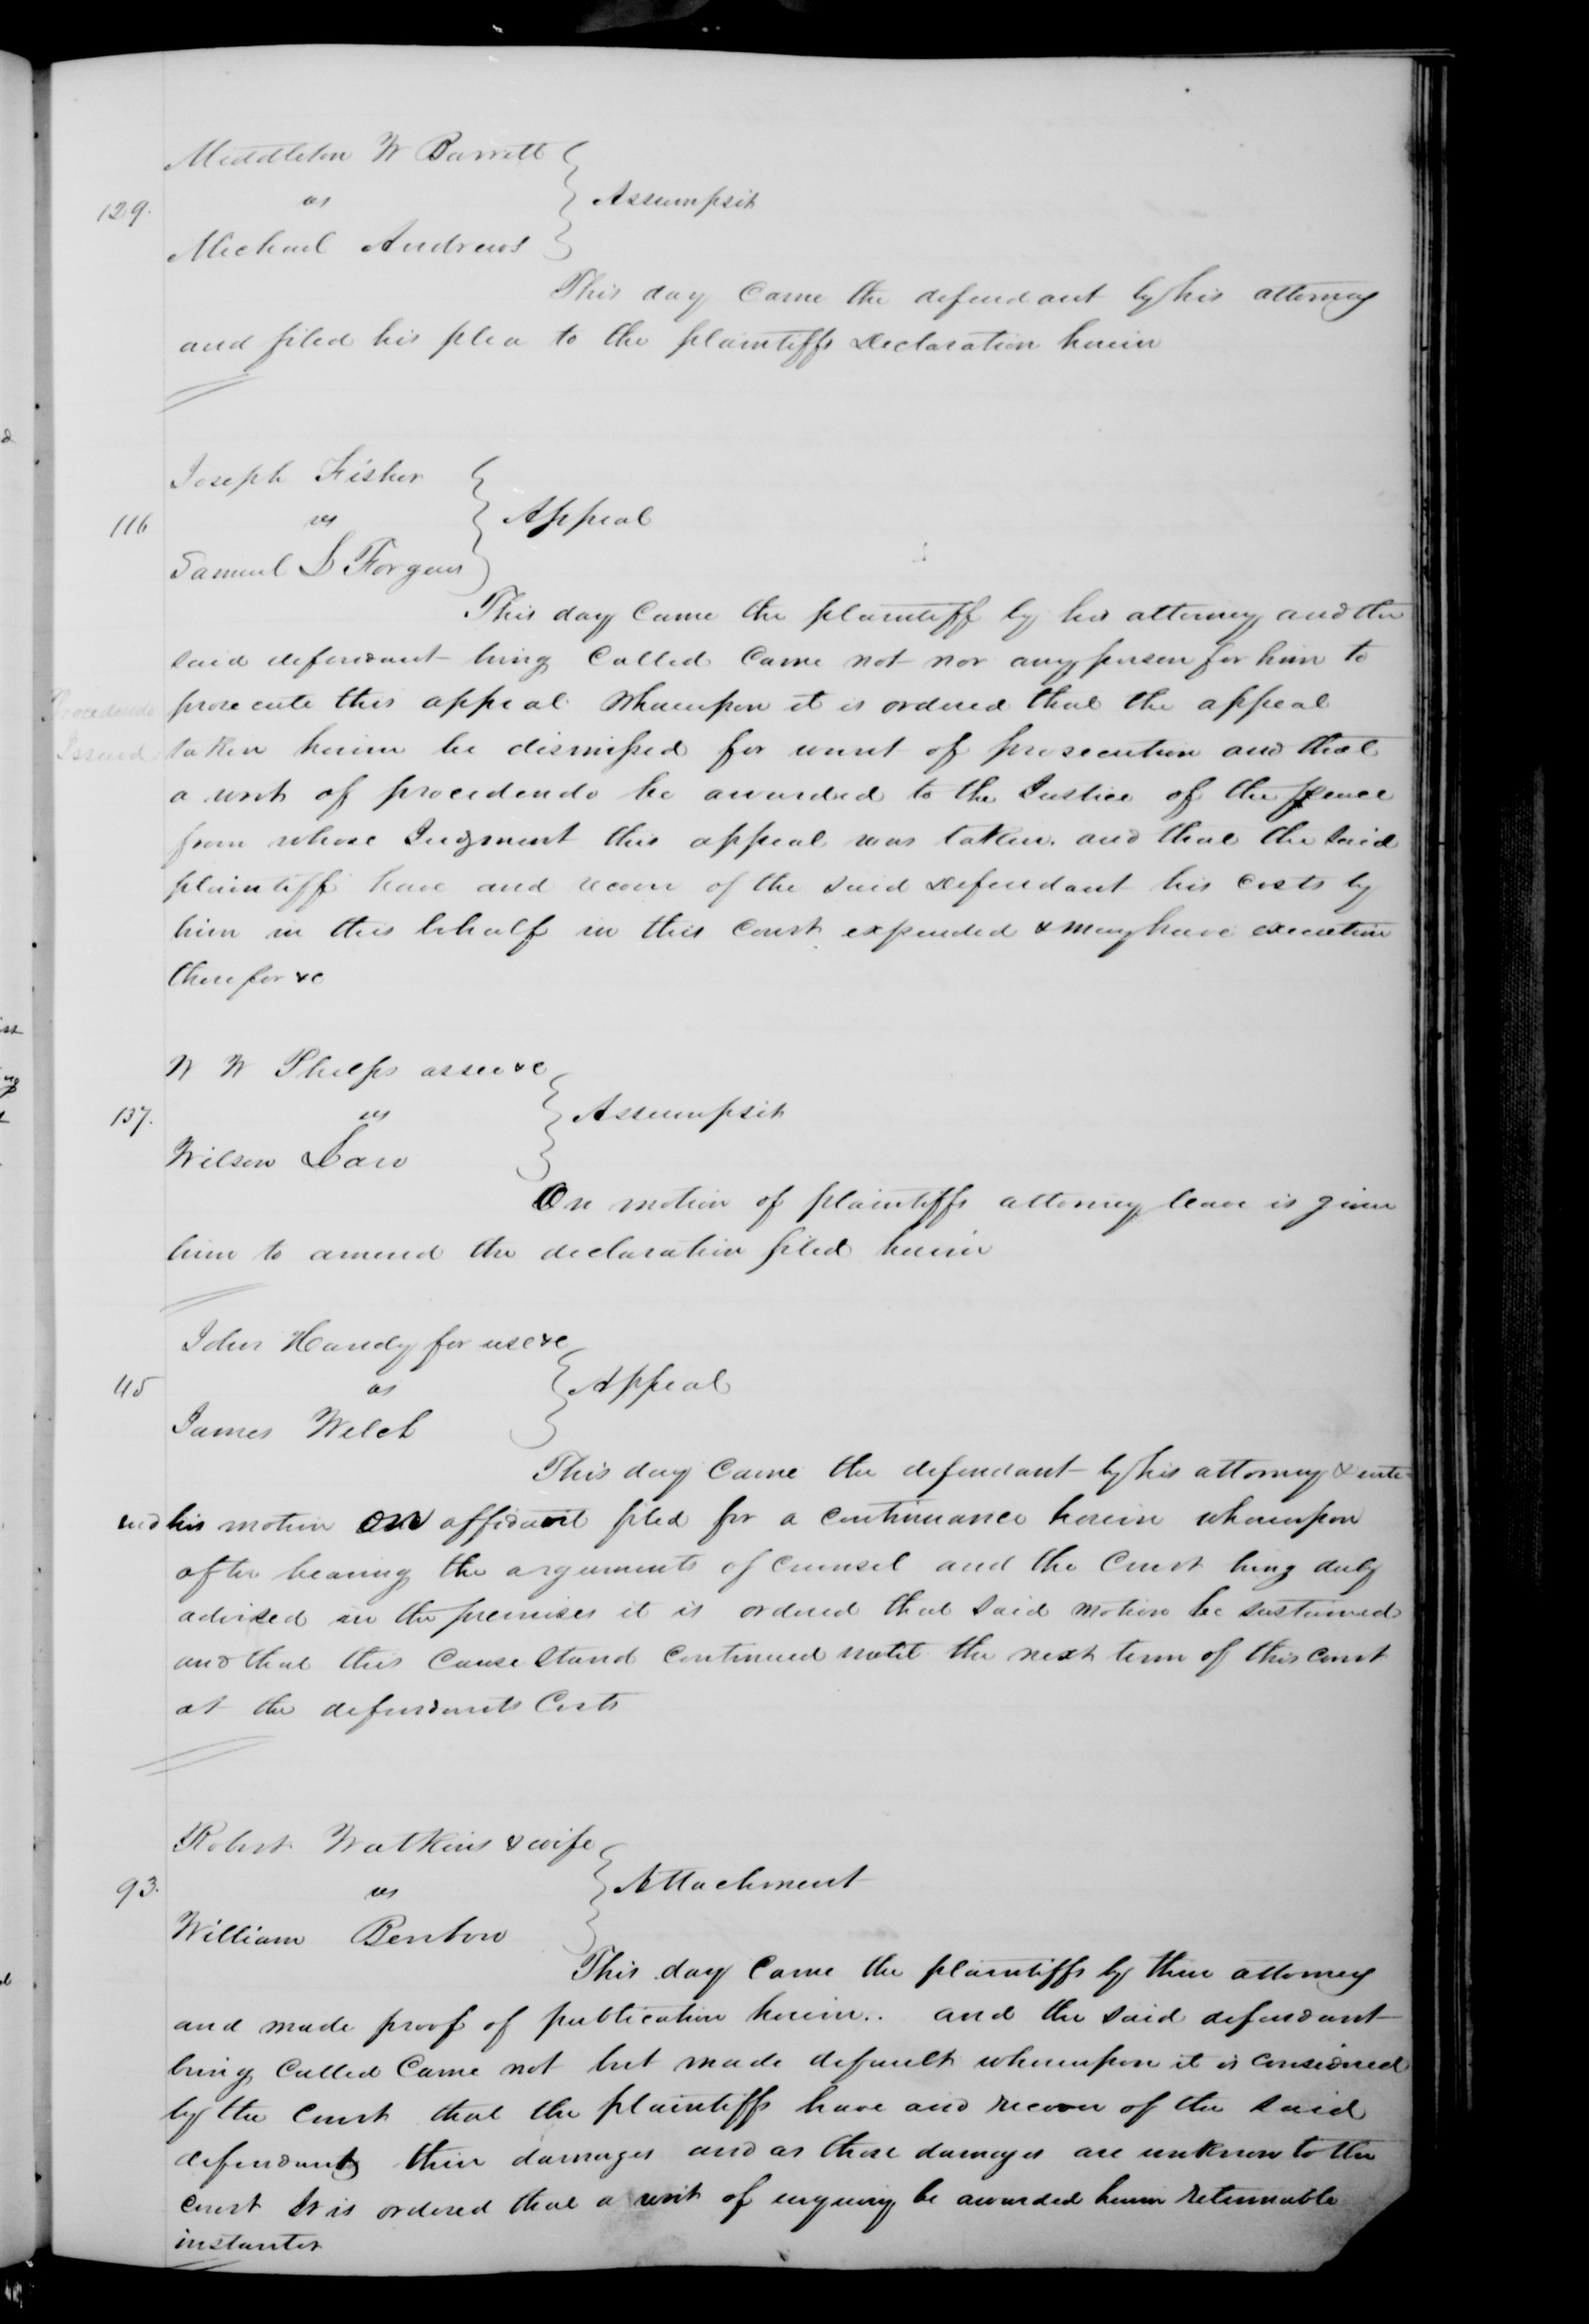 Middleton W Barrett
129. vs } Assumpsit
Michael Andrews
This day Came the defendant by his attorney
and filed his plea to the plaintiffs Declaration herein
Joseph Fisher
116 vs } Appeal
Samuel S Forgeus
This day Came the plaintiff by his attorney and the
said defendant being Called Came not nor any person for him to
Procedendo prosecute this appeal Whereupon it is ordered that the appeal
Issued taken herein be dismissed for want of prosecution and that
a writ of procedendo be awarded to the Justice of the peace
from whose Judgment this appeal was taken. and that the said
plaintiff have and recover of the said Defendant his Costs by
him in this behalf in this Court expended & may have execution
therefor &c
W W Phelps assee &c
137. vs } Assumpsit
Wilson Law
On motion of plaintiffs attorney leave is given
him to amend the declaration filed herein
John Handy for use &c
115 vs } Appeal
James Welch
This day Came the defendant by his attorney & ente
red his motion on affidavit filed for a Continuance herein whereupon
after hearing the arguments of Counsel and the Court being duly
advised in the premises it is ordered that said motion be sustained
and that this Cause Stand Continued until the next term of this Court
at the defendants Costs
Robert Watkins & wife
93. vs } Attachment
William Benbow
This day Came the plaintiffs by their attorney
and made proof of publication herein.. and the said defendant
being Called Came not but made default whereupon it is considered
by the Court that the plaintiffs have and recover of the said
defendant their damages and as those damages are unknown to the
Court It is ordered that a writ of enquiry be awarded herein returnable
instanter